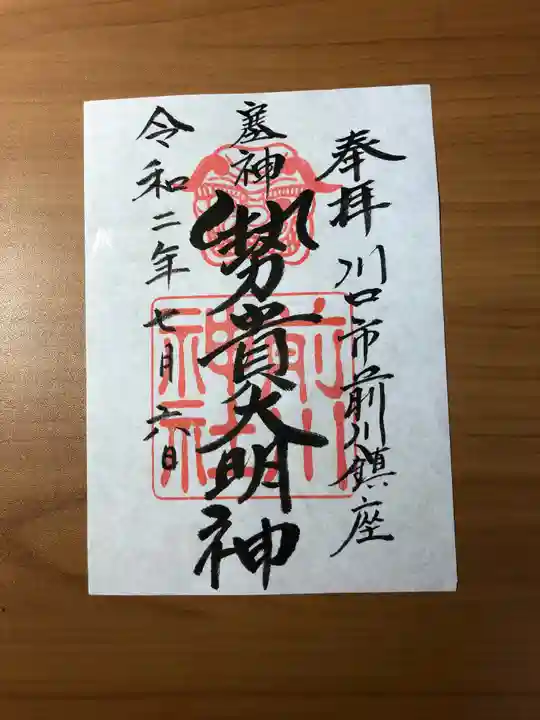 奉拝 川口市前川鎮座
塞神
勢貴大明神
前川
神社
令和二年七月六日